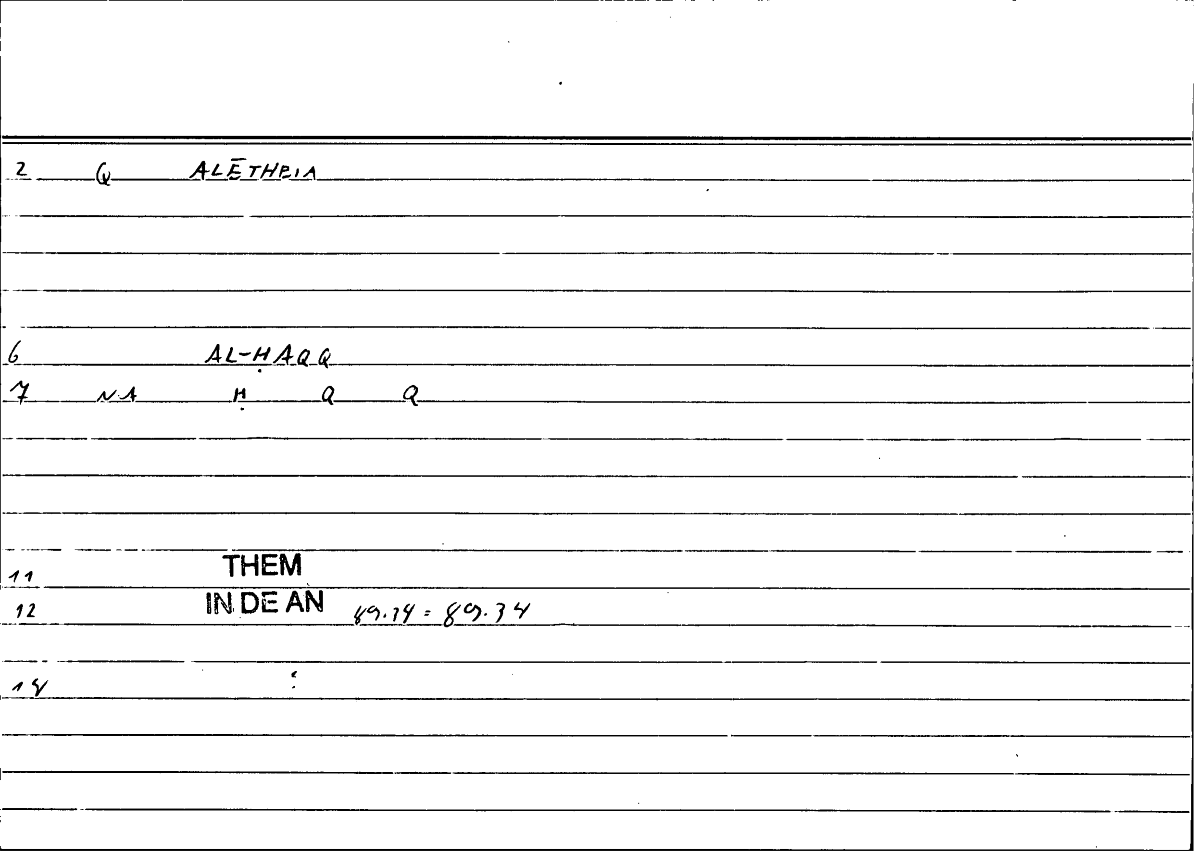 2 Q ALĒTHEIA
6 AL-ḤAQQ
7 NA Ḥ Q Q
11 THEM
12 IN DE AN 89.34 = 89.34
14 :